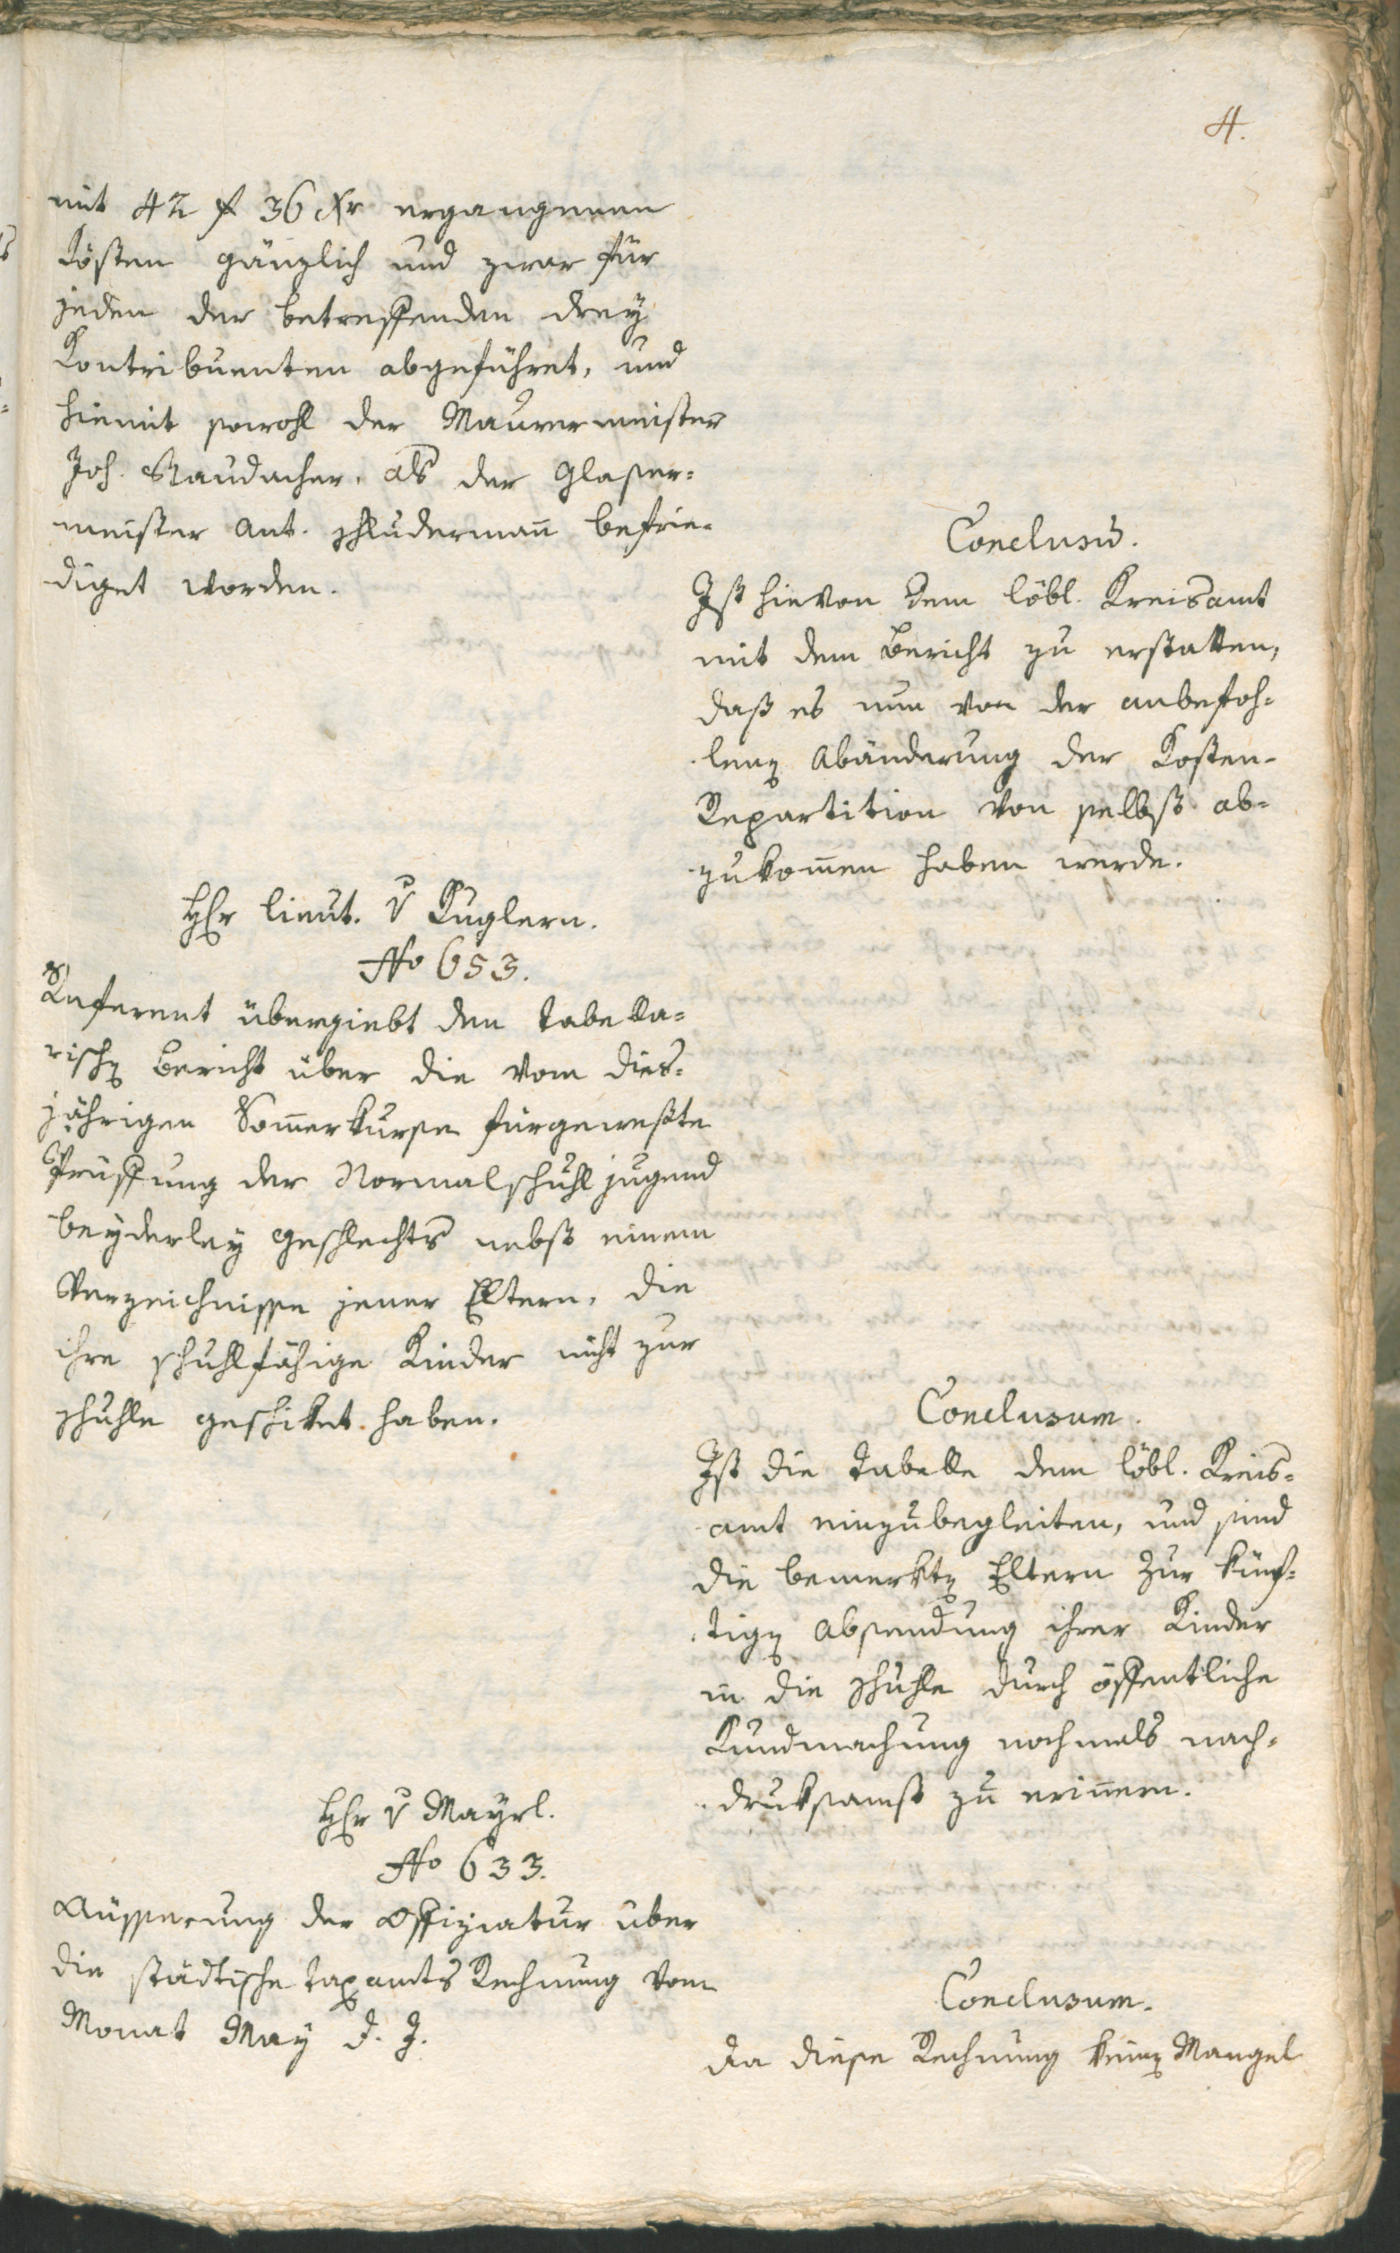 4.
mit 42 f 36 Xr ergangenen
Kösten gänzlich und zwar für
jeden der betreffenden drey
Kontribuenten abgeführet, und
hiemit sowohl der Maurermeister
Joh. Raudacher, als der Glaser-
meister Ant. Schludermañ befrie-
diget worden.
Conclusũ.
Ist hievon dem löbl. Kreisamt
mit dem Bericht zu erstatten,
daß es nun von der anbefoh-
lenen Abänderung der Kosten-
Repartition von selbst ab-
zukom̄en haben werde.
Hr lieut. v Kuglern.
No 653.
Referent übergiebt den tabella-
rischen Bericht über die vom dies-
jährigen Som̄erkurse fürgeweste
Prüffung der Normalschuhljugend
beyderley Geschlechts nebst einem
Verzeichnisse jener Eltern, die
ihre schuhlfähige Kinder nicht zur
Schuhle geschiket haben.
Conclusum.
Ist die Tabelle dem löbl. Kreis-
amt einzubegleiten, und sind
die bemerkten Eltern zur künf-
tigen Absendung ihrer Kinder
in die Schuhle durch öffentliche
Kundmachung nochmals nach-
druksamst zu eriñern.
Hr v Mayrl.
No 633.
Aüsserung der Offiziatur über
die städtische Taxamts Rechnung vom
Monat May d. J.
Conclusum.
Da diese Rechnung keinen Mangel